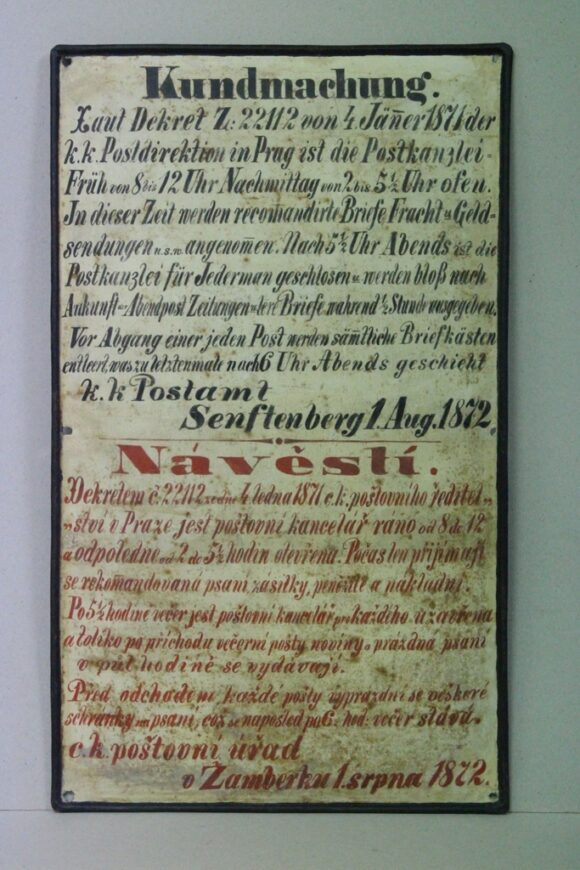 Kundmachung.
Laut Dekret Z: 22112 von 4 Jän̄er 1871 der
k.k. Postdirektion in Prag ist die Postkanzlei-
Früh von 8 bis 12 Uhr Nachmittag von 2 bis 5½ Uhr ofen.
In dieser Zeit werden recomandirte Briefe Fracht u. Geld-
sendungen u.s.w. angenom̄en. Nach 5½ Uhr Abends ist die
Postkanzlei für Jederman geschlosen u. werden bloß nach
Ankunft der Abendpost Zeitungen u. lere Briefe während ½ Stunde ausgegeben.
Vor Abgang einer jeden Post werden säm̄tliche Briefkästen
entleert, was zu letztenmale nach 6 Uhr Abends geschieht
k.k Postamt
Senftenberg 1. Aug. 1872.
Návěstí.
Dekretem č. 22112 ze dne 4 ledna 1871 c.k. poštovního ředitel-
ství v Praze jest poštovní kancelář ráno od 8 do 12
a odpoledne od 2 do 5½ hodin otevřena. Počas ten přijímají
se rekom̄andovaná psaní, zásilky, peněžité a nákladní.
Po 5½ hodině večer jest poštovní kancelář pro každého uzavřena
a toliko po příchodu večerní pošty noviny a prázdná psaní
v půl hodině se vydávají.
Před odchodem každé pošty vyprázdní se veškeré
schránky na psaní, což se naposled po 6. hod. večer stává.
c.k. poštovní úřad
v Žamberku 1. srpna 1872.